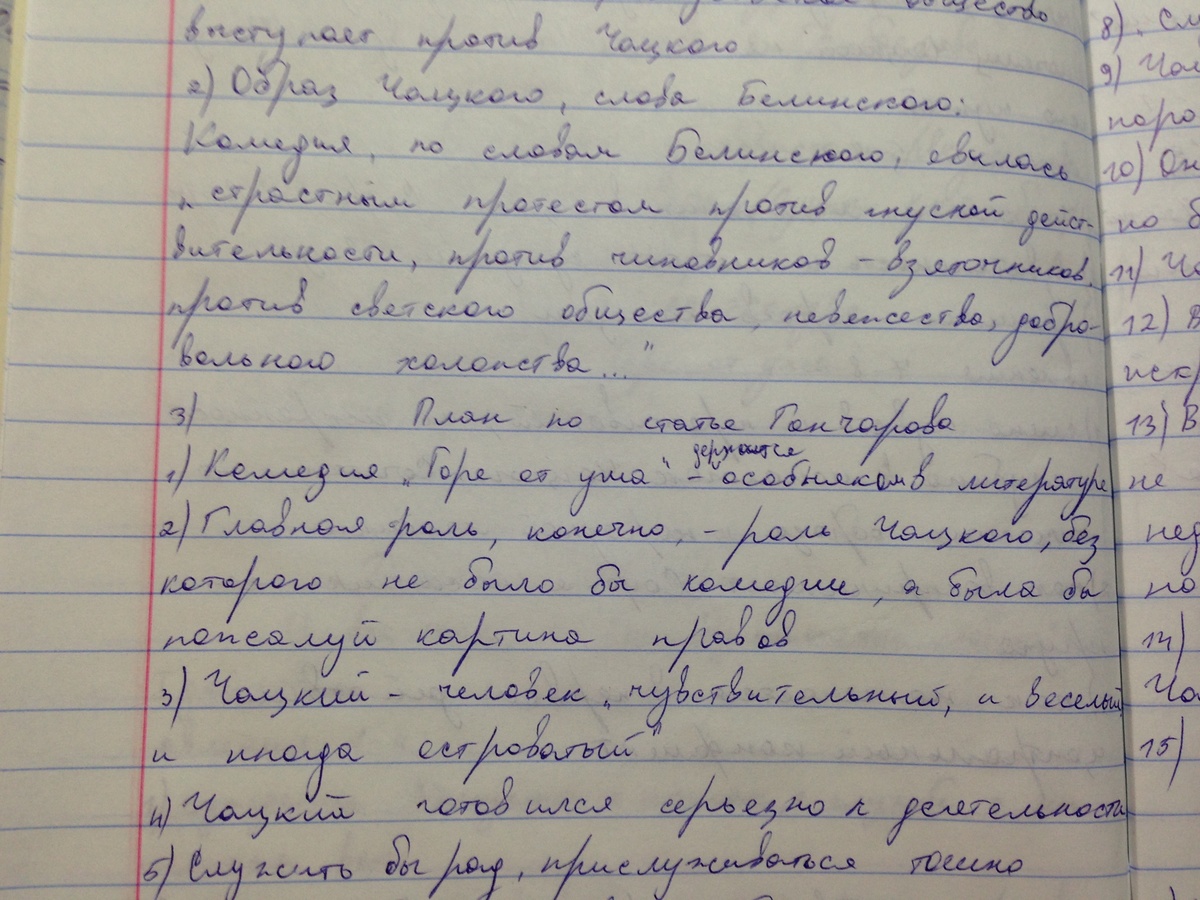 общество
выступает против Чацкого
2) Образ Чацкого, слова Белинского:
Комедия, по словам Белинского, явилась
„страстным протестом против гнусной дейст-
вительности, против чиновников – взяточников,
против светского общества, невежества, добро-
вольного холопства..."
3) План по статье Гончарова
держится
1) Комедия „Горе от ума" – особняком в литературе
2) Главная роль, конечно, – роль Чацкого, без
которого не было бы комедии, а была бы
пожалуй картина нравов
3) Чацкий – человек „чувствительный, и веселый
и иногда островатый"
4) Чацкий готовился серьезно к деятельности
5) Служить бы рад, прислуживаться тошно
8)
9)
10) Он
по
11)
12) В
13) В
не
по
14)
15)